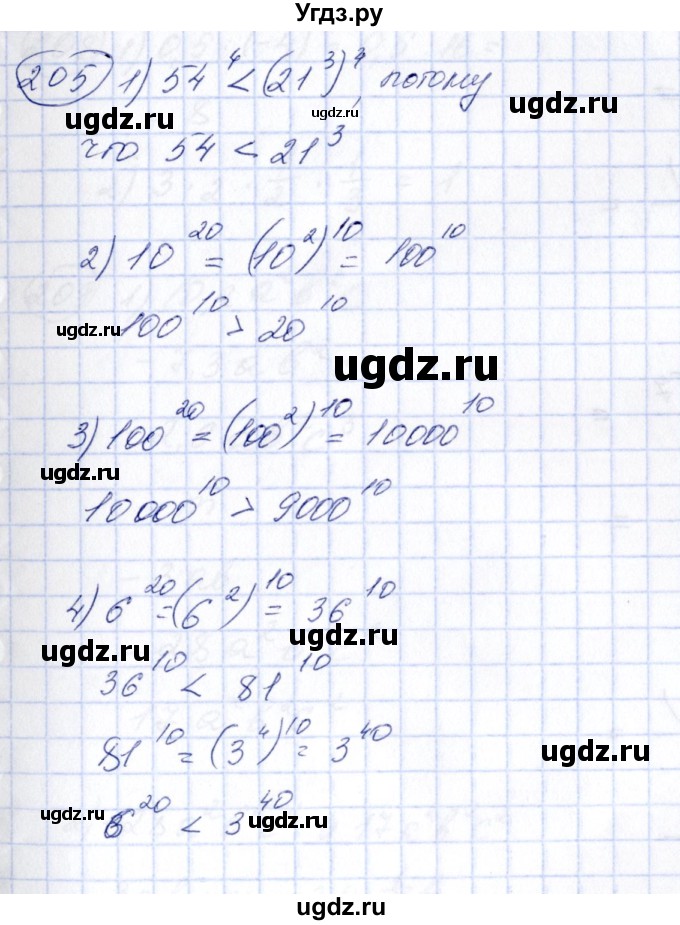 Угдз.ру
205 1) 54⁴ < (21³)⁴, потому
ugdz.ru ugdz.ru ugdz.ru
что 54 < 21³
2) 10²⁰ = (10²)¹⁰ = 100¹⁰
ugdz.ru 100¹⁰ > 20¹⁰
ugdz.ru
3) 100²⁰ = (100²)¹⁰ = 10000¹⁰
ugdz.ru
10000¹⁰ > 9000¹⁰
4) 6²⁰ = (6²)¹⁰ = 36¹⁰
ugdz.ru ugdz.ru
36¹⁰ < 81¹⁰
81¹⁰ = (3⁴)¹⁰ = 3⁴⁰
ugdz.ru 6²⁰ < 3⁴⁰ ugdz.ru
ugdz.ru